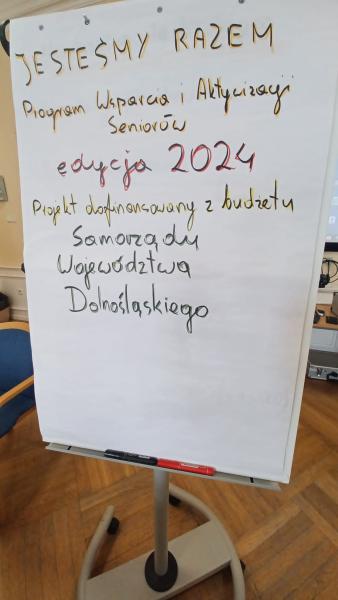 JESTEŚMY RAZEM
Program Wsparcia i Aktywizacji
Seniorów
edycja 2024
Projekt dofinansowany z budżetu
Samorządu
Województwa
Dolnośląskiego